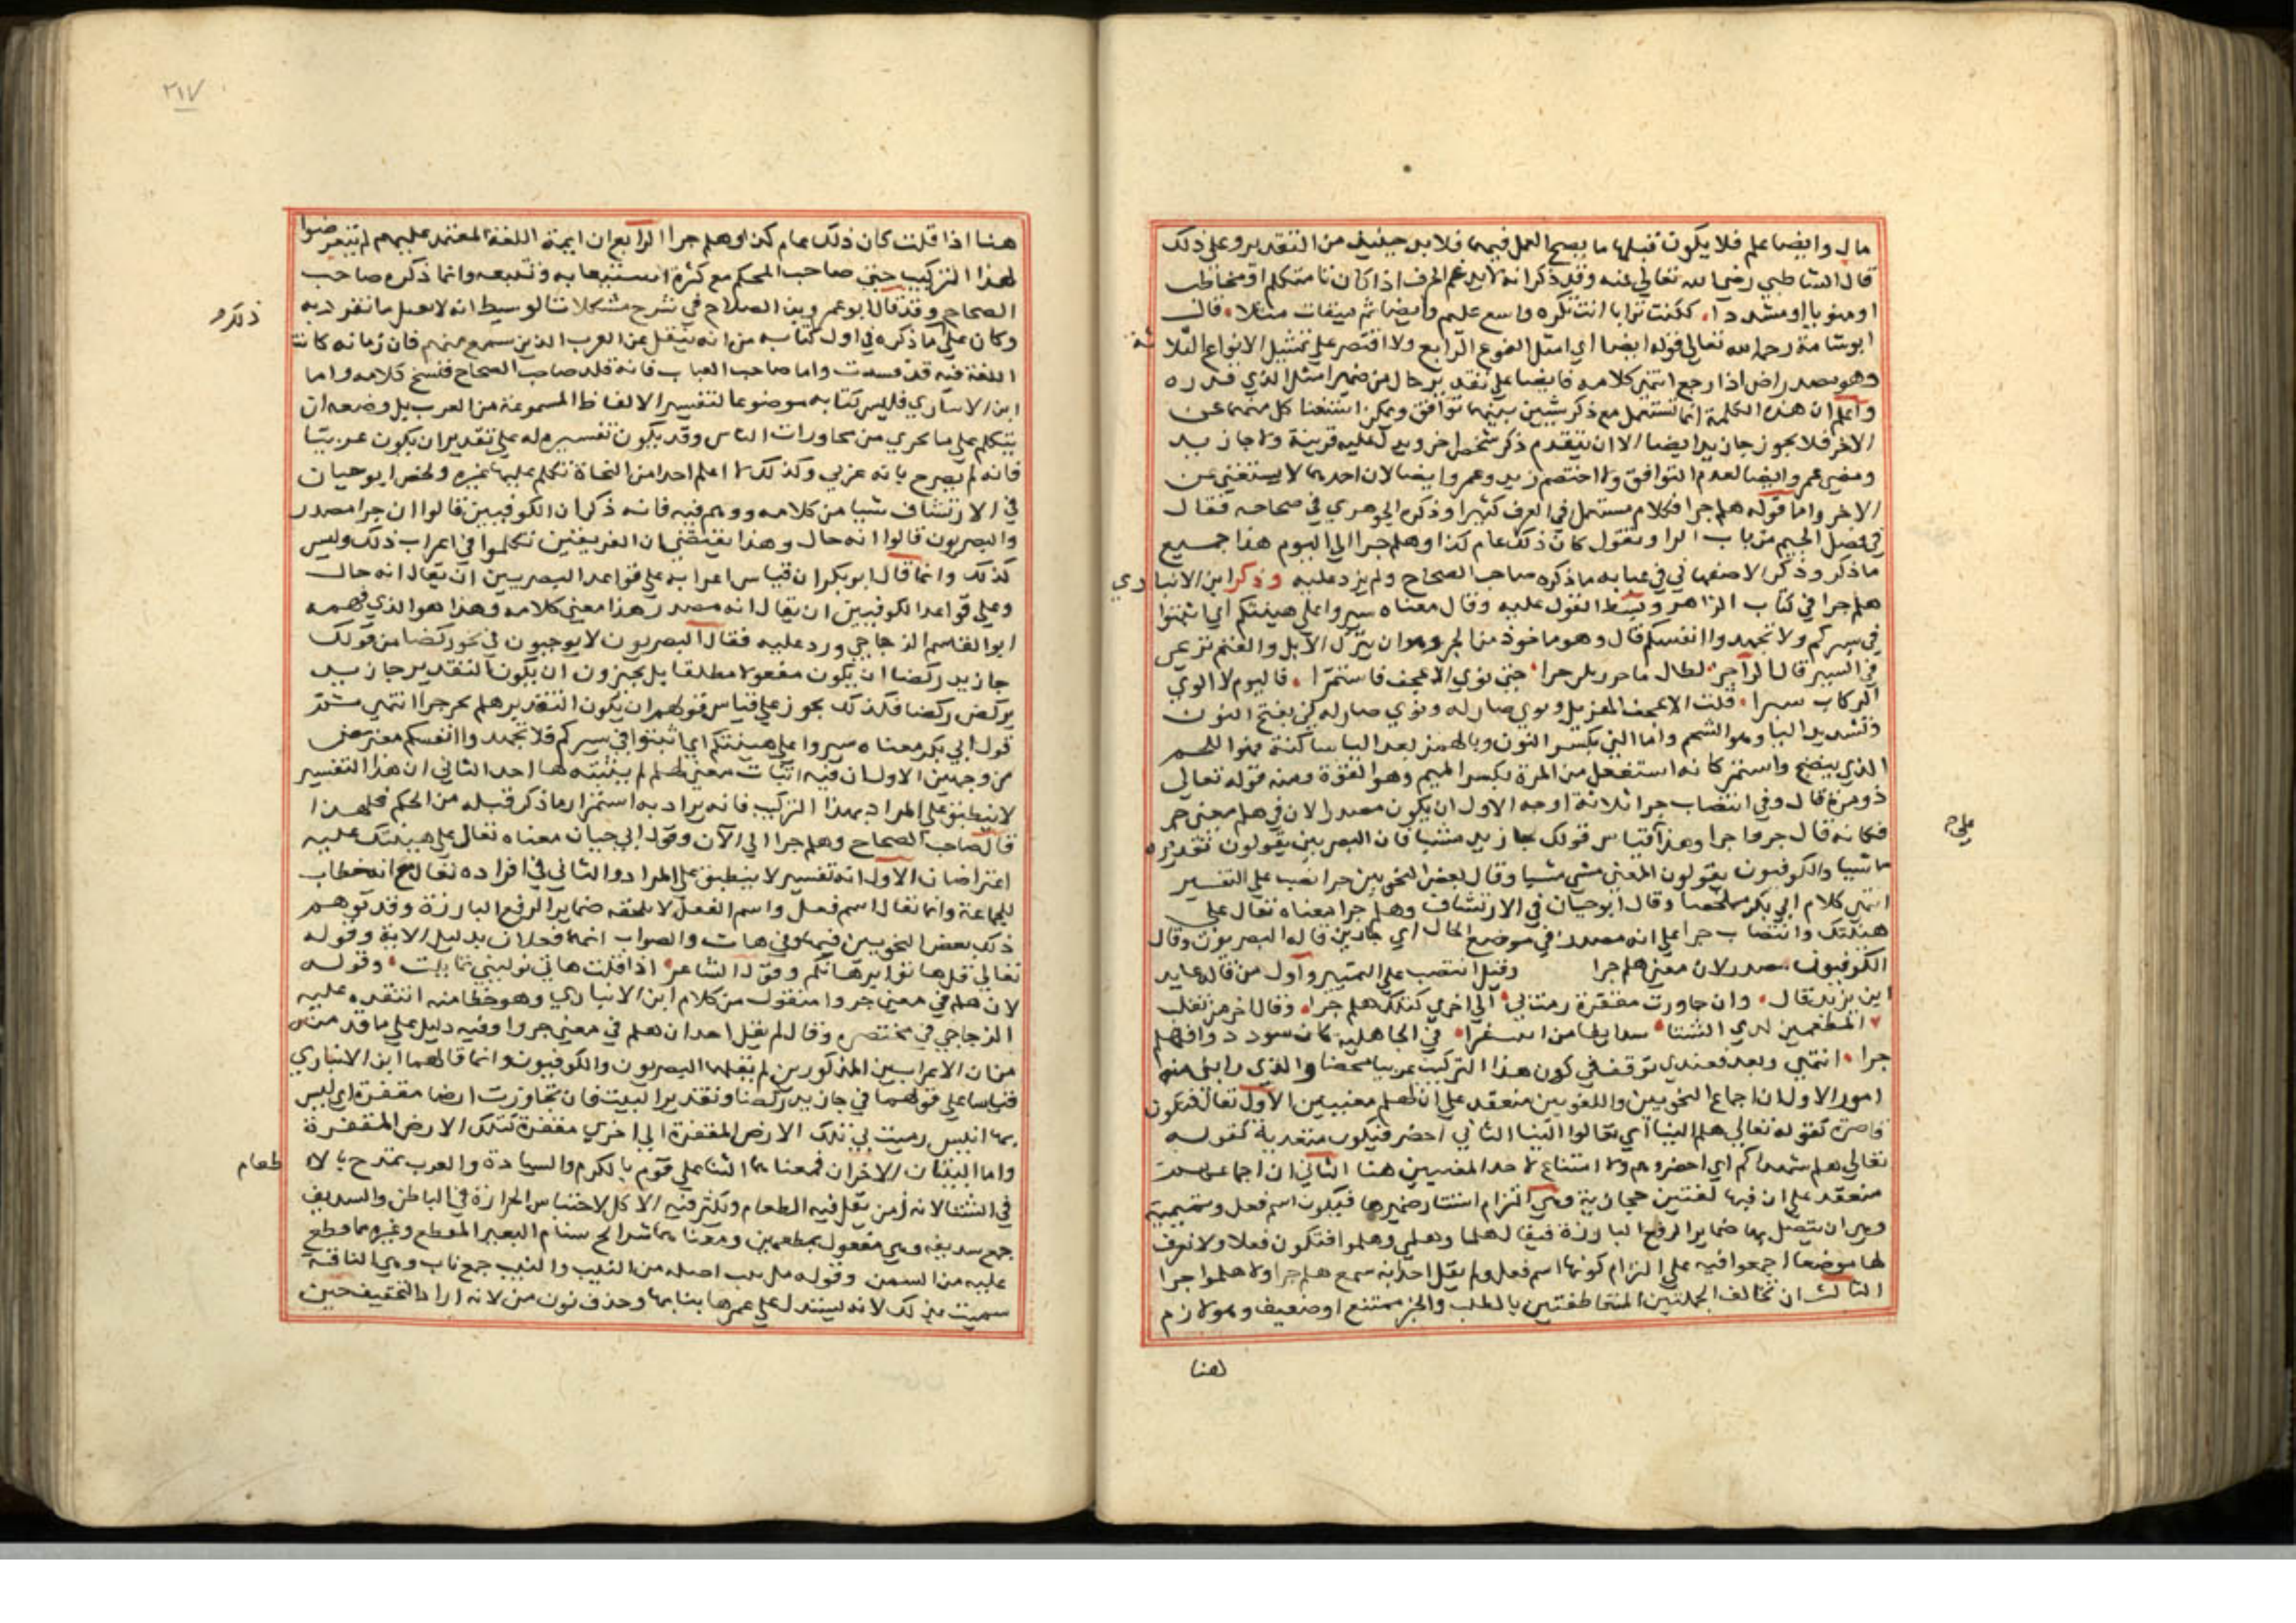 مال وايضا علم فلا يكون قبلها ما يصح العمل فيها فلا بد حينئذ من التقدير وعلى ذلك
قال الشاطبي رضي الله تعالى عنه وقد ذكر انه لا يدغم الحرف اذا كان تا متكلم او مخاطب
او منونا او مشددا ككنت ترابا انت تكره واسع عليم وايضا ثم ميقات مثلا قال
ابو شامة رحمه الله تعالى قوله ايضا اي امثل النوع الرابع ولا اقتصر على تمثيل الانواع الثلا ثة
وهو مصدر اض اذا رجع انتهى كلامه فايضا على تقديره حال من ضمير امثل الذي قدره
واعلم ان هذه الكلمة انما تستعمل مع ذكر شيئين بينهما توافق ويمكن استغنا كل منهما عن
الاخر فلا يجوز جا زيد ايضا الا ان يتقدم ذكر شخص اخر ويدل عليه قرينة ولا جا زيد
ومضى عمرو ايضا لعدم التوافق ولا اختصم زيد وعمرو ايضا لان احدهما لا يستغني عن
الاخر واما قوله هلم جرا فكلام مستعمل في العرف كثيرا وذكره الجوهري في صحاحه فقال
في فصل الجيم من باب الرا وتقول كان ذلك عام كذا وهلم جرا الى اليوم هذا جميع
ما ذكر وذكر الاصفهاني في عبابه ما ذكره صاحب الصحاح ولم يزد عليه وذكر ابن الانبا ري
هلم جرا في كتاب الزاهر وبسط القول عليه وقال معناه سيروا على هينتكم اي اثبتوا
في سيركم ولا تجهدوا انفسكم قال وهو ماخوذ من الجر وهو ان يترك الابل والغنم ترعى
في السير قال الراجز لطال ما جررتكن جرا حتى نوى الاعجف فاستمرا فاليوم لا الوي
الركاب سرا قلت الاعجف المهزيل ونوى صار له
وتشديد اليا وهو الشحم واما الني بكسر النون وبالهمز بعد اليا ساكنة فهو اللحم
الذي ينضج واستمر كانه استفعل من المرة بكسر الميم وهو القوة ومنه قوله تعالى
ذو مرة قال وفي انتصاب جرا ثلاثة اوجه الاول ان يكون مصدرا لان في هلم معنى جر
فكانه قال جروا جرا وهذا قياس قولك جا زيد مشيا فان البصريين يقولون تقديره
ماشيا والكوفيون يقولون المعنى مشى مشيا وقال بعض النحويين جرا نصب على التفسير
انتهى كلام ابي بكر ملخصا وقال ابو حيان في الارتشاف وهلم جرا معناه تعال على
هينتك وانتصاب جرا على انه مصدر في موضع الحال اي جارين قاله البصريون وقال
الكوفيون مصدر لان معنى هلم جرا وقيل انتصب على التمييز واول من قاله عايد
ابن يزيد قال وان جاوزت مقفرة رمت بي الى اخرى كتلك هلم جرا وقال اخر من تغلب
المطعمين لدي الشتا في الجاهلية كان سودد وافهلم
جرا انتهى وبعد فعندي توقف في كون هذا التركيب عربيا محضا والذي رابني منه
امور الاول ان اجماع النحويين واللغويين منعقد على ان لهلم معنيين الاول تعال فتكون
قاصرة كقوله تعالى هلم الينا اي تعالوا الينا الثاني احضر فتكون متعدية كقوله
تعالى هلم شهداكم اي احضروهم ولا امتناع لاحد المعنيين هنا الثاني ان اجماعهم
منعقد على ان فيها لغتين حجازية وهي التزام استتار ضميرها فيكون اسم فعل وتميمية
وهي ان يتصل بها ضماير الرفع البارزة فيقال هلما وهلمي وهلموا فتكون فعلا ولا نعرف
لها موضعا اجمعوا فيه على التزام كونها اسم فعل ولم يقل احد انه سمع هلم جرا ولا هلموا جرا
الثالث ان تخالف الجملتين المتعاطفتين بالطلب والخبر ممتنع او ضعيف وهو لازم
هنا
على م
٢١٧
هنا اذا قلت كان ذلك عام كذا وهلم جرا الرابع ان ايمة اللغة المعتمد عليهم لم يتعرضوا
لهذا التركيب حتى صاحب المحكم مع كثرة استيعابه وتتبعه وانما ذكره صاحب
الصحاح وقد قال ابو عمرو بن الصلاح في شرح مشكلات الوسيط انه لا يقبل ما تفرد به
ذلك م
وكان على ما ذكره في اول كتابه من انه ينقل عن العرب الذين سمع منهم فان زمانه كانت
اللغة فيه قد فسدت واما صاحب العباب فانه قلد صاحب الصحاح فنسخ كلامه واما
ابن الانباري فليس كتابه موضوعا لتفسير الالفاظ المسموعة من العرب بل وضعه ان
يتكلم على ما يجري من محاورات الناس وقد يكون تفسيره له على تقدير ان يكون عربيا
فانه لم يصرح بانه عربي وكذلك لا اعلم احدا من النحاة تكلم عليها غيره ولخص ابو حيان
في الارتشاف شيا من كلامه ووهم فيه فانه ذكر ان الكوفيين قالوا ان جرا مصدر
والبصريون قالوا انه حال وهذا يقتضي ان الفريقين تكلموا في اعراب ذلك وليس
كذلك وانما قال ابو بكر ان قياس اعرابه على قواعد البصريين ان يقال انه حال
وعلى قواعد الكوفيين ان يقال انه مصدر هذا معنى كلامه وهذا هو الذي فهمه
ابو القاسم الزجاجي ورد عليه فقال البصريون لا يوجبون في نحو ركضا من قولك
جا زيد ركضا ان يكون مفعولا مطلقا بل يجيزون ان يكون التقدير جا زيد
يركض ركضا فكذلك يجوز على قياس قولهم ان يكون التقدير هلم نجر جرا انتهى
قول ابي بكر معناه سيروا على هينتكم اي اثبتوا في سيركم فلا تجهدوا انفسكم معترض
من وجهين الاول ان فيه اثبات معنى لهلم لم يثبته لها احد الثاني ان هذا التفسير
لا ينطبق على المراد بهذا التركيب فانه يراد به استمرار ما ذكر قبله من الحكم فلهذا
قال صاحب الصحاح وهلم جرا الى الآن وقول ابي حيان معناه تعال على هينتك عليه
اعتراضان الاول انه تفسير لا ينطبق على المراد والثاني في افراده تعال مع انه خطاب
للجماعة وانما تعال اسم فعل واسم الفعل لا تلحقه ضماير الرفع البارزة وقد توهم
ذلك بعض النحويين فيها وفي هات والصواب انهما فعلان بدليل الاية وقوله
تعالى قل هاتوا برهانكم وقول الشاعر اذا قلت هاتي نوليني تمايلت وقوله
لان هلم في معنى جروا منقول من كلام ابن الانباري وهو خطا منه انتقده عليه
الزجاجي في مختصره وقال لم يقل احد ان هلم في معنى جروا وفيه دليل على ما قدمت
من ان الاعرابين المذكورين لم يقلهما البصريون والكوفيون وانما قالهما ابن الانباري
قياسا على قولهما في جا زيد ركضا وتقدير البيت فان تجاوزت ارضا مقفرة اي ليس
بها انيس رمت بي تلك الارض المقفرة الى اخرى مقفرة كتلك الارض المقفرة
واما البيتان الاخران فمعناهما الثنا على قوم بالكرم والسيادة والعرب تمتدح بالا طعام
في الشتا لانه زمن يقل فيه الطعام ويكثر فيه الاكل لاحتباس الحرارة في الباطن والسديف
جمع سديفه وهي مفعول بمطعمين ومعناهما شرايح سنام البعير المقطع وغيره مما قطع
عليه من السمن وقوله اصله من النيب والنيب جمع ناب وهي الناقة
سميت بذلك لانه يستدل على عمرها بنابها وحذف نون من لانه اراد التخفيف حين